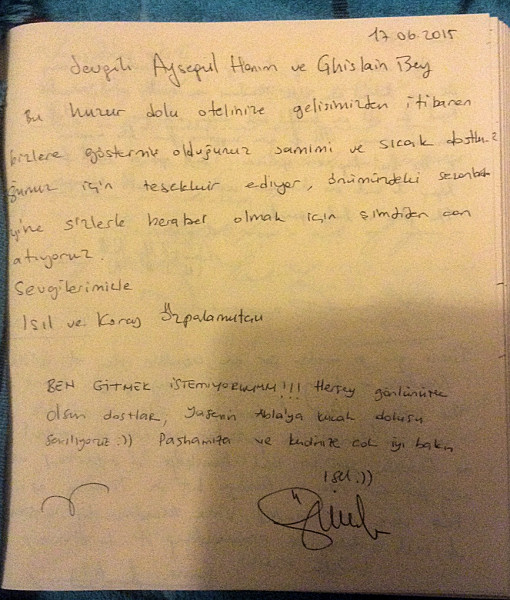 17.06.2015
Sevgili Ayşegül Hanım ve Ghislain Bey
Bu huzur dolu otelinize gelişimizden itibaren
bizlere göstermiş olduğunuz samimi ve sıcak dostlu
ğunuz için teşekkür ediyor, önümüzdeki
yine sizlerle beraber olmak için şimdiden can
atıyoruz.
Sevgilerimizle
Işıl ve Koray Özpalamutcu
BEN GİTMEK İSTEMİYORUMMM!!! Herşey gönlünüzce
olsun dostlar, Yasemin Abla'ya kucak dolusu
sarılıyoruz :)) Pashamıza ve kendinize çok iyi bakın
Işıl :))